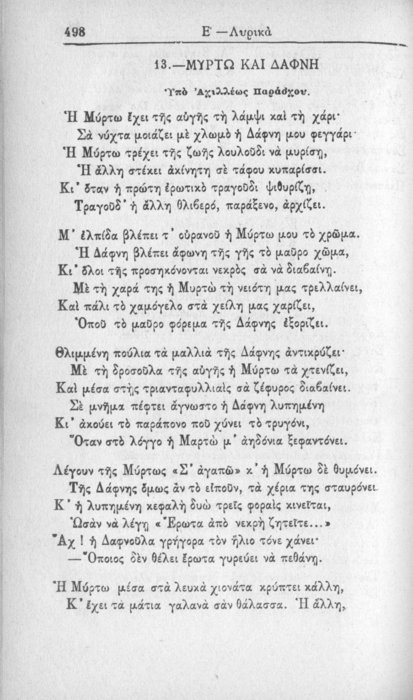 498
Ε΄ —Λυρικὰ
13.—ΜΥΡΤΩ ΚΑΙ ΔΑΦΝΗ
Ὑπὸ Ἀχιλλέως Παράσχου.
Ἡ Μύρτω ἔχει τῆς αὐγῆς τὴ λάμψι καὶ τὴ χάρι·
Σὰ νύχτα μοιάζει μὲ χλωμὸ ἡ Δάφνη μου φεγγάρι·
Ἡ Μύρτω τρέχει τῆς ζωῆς λουλοῦδι νὰ μυρίσῃ,
Ἡ ἄλλη στέκει ἀκίνητη σὲ τάφου κυπαρίσσι.
Κι᾿ ὅταν ἡ πρώτη ἐρωτικὸ τραγοῦδι ψιθυρίζῃ,
Τραγουδ᾿ ἡ ἄλλη θλιβερό, παράξενο, ἀρχίζει.
Μ᾿ ἐλπίδα βλέπει τ᾿ οὐρανοῦ ἡ Μύρτω μου τὸ χρῶμα.
Ἡ Δάφνη βλέπει ἄφωνη τῆς γῆς τὸ μαῦρο χῶμα,
Κι᾿ ὅλοι τῆς προσηκόνονται νεκρὸς σὰ νὰ διαβαίνῃ.
Μὲ τὴ χαρά της ἡ Μυρτὼ τὴ νειότη μας τρελλαίνει,
Καὶ πάλι τὸ χαμόγελο στὰ χείλη μας χαρίζει,
Ὁποῦ τὸ μαῦρο φόρεμα τῆς Δάφνης ἐξορίζει.
Θλιμμένη πούλια τὰ μαλλιὰ τῆς Δάφνης ἀντικρύζει·
Μὲ τὴ δροσοῦλα τῆς αὐγῆς ἡ Μύρτω τὰ χτενίζει,
Καὶ μέσα στῂς τριανταφυλλιαὶς σὰ ζέφυρος διαβαίνει.
Σὲ μνῆμα πέφτει ἄγνωστο ἡ Δάφνη λυπημένη
Κι᾿ ἀκούει τὸ παράπονο ποῦ χύνει τὸ τρυγόνι,
Ὅταν στὸ λόγγο ἡ Μαρτὼ μ᾿ ἀηδόνια ξεφαντόνει.
Λέγουν τῆς Μύρτως «Σ᾿ ἀγαπῶ» κ᾿ ἡ Μύρτω δὲ θυμόνει.
Τῆς Δάφνης ὅμως ἂν τὸ εἰποῦν, τὰ χέρια της σταυρόνει.
Κ᾿ ἡ λυπημένη κεφαλὴ δυὼ τρεῖς φοραὶς κινεῖται,
Ὡσὰν νὰ λέγῃ «Ἔρωτα ἀπὸ νεκρὴ ζητεῖτε...»
Ἂχ ! ἡ Δαφνοῦλα γρήγορα τὸν ἥλιο τόνε χάνει·
—Ὅποιος δὲν θέλει ἔρωτα γυρεύει νὰ πεθάνῃ.
Ἡ Μύρτω μέσα στὰ λευκὰ χιονάτα κρύπτει κάλλη,
Κ᾿ ἔχει τὰ μάτια γαλανὰ σὰν θάλασσα. Ἡ ἄλλη,